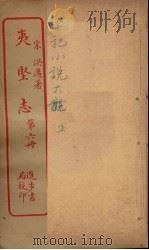 笔记小说大觀
宋 洪邁著
夷堅志
第六册
進步書
局校印